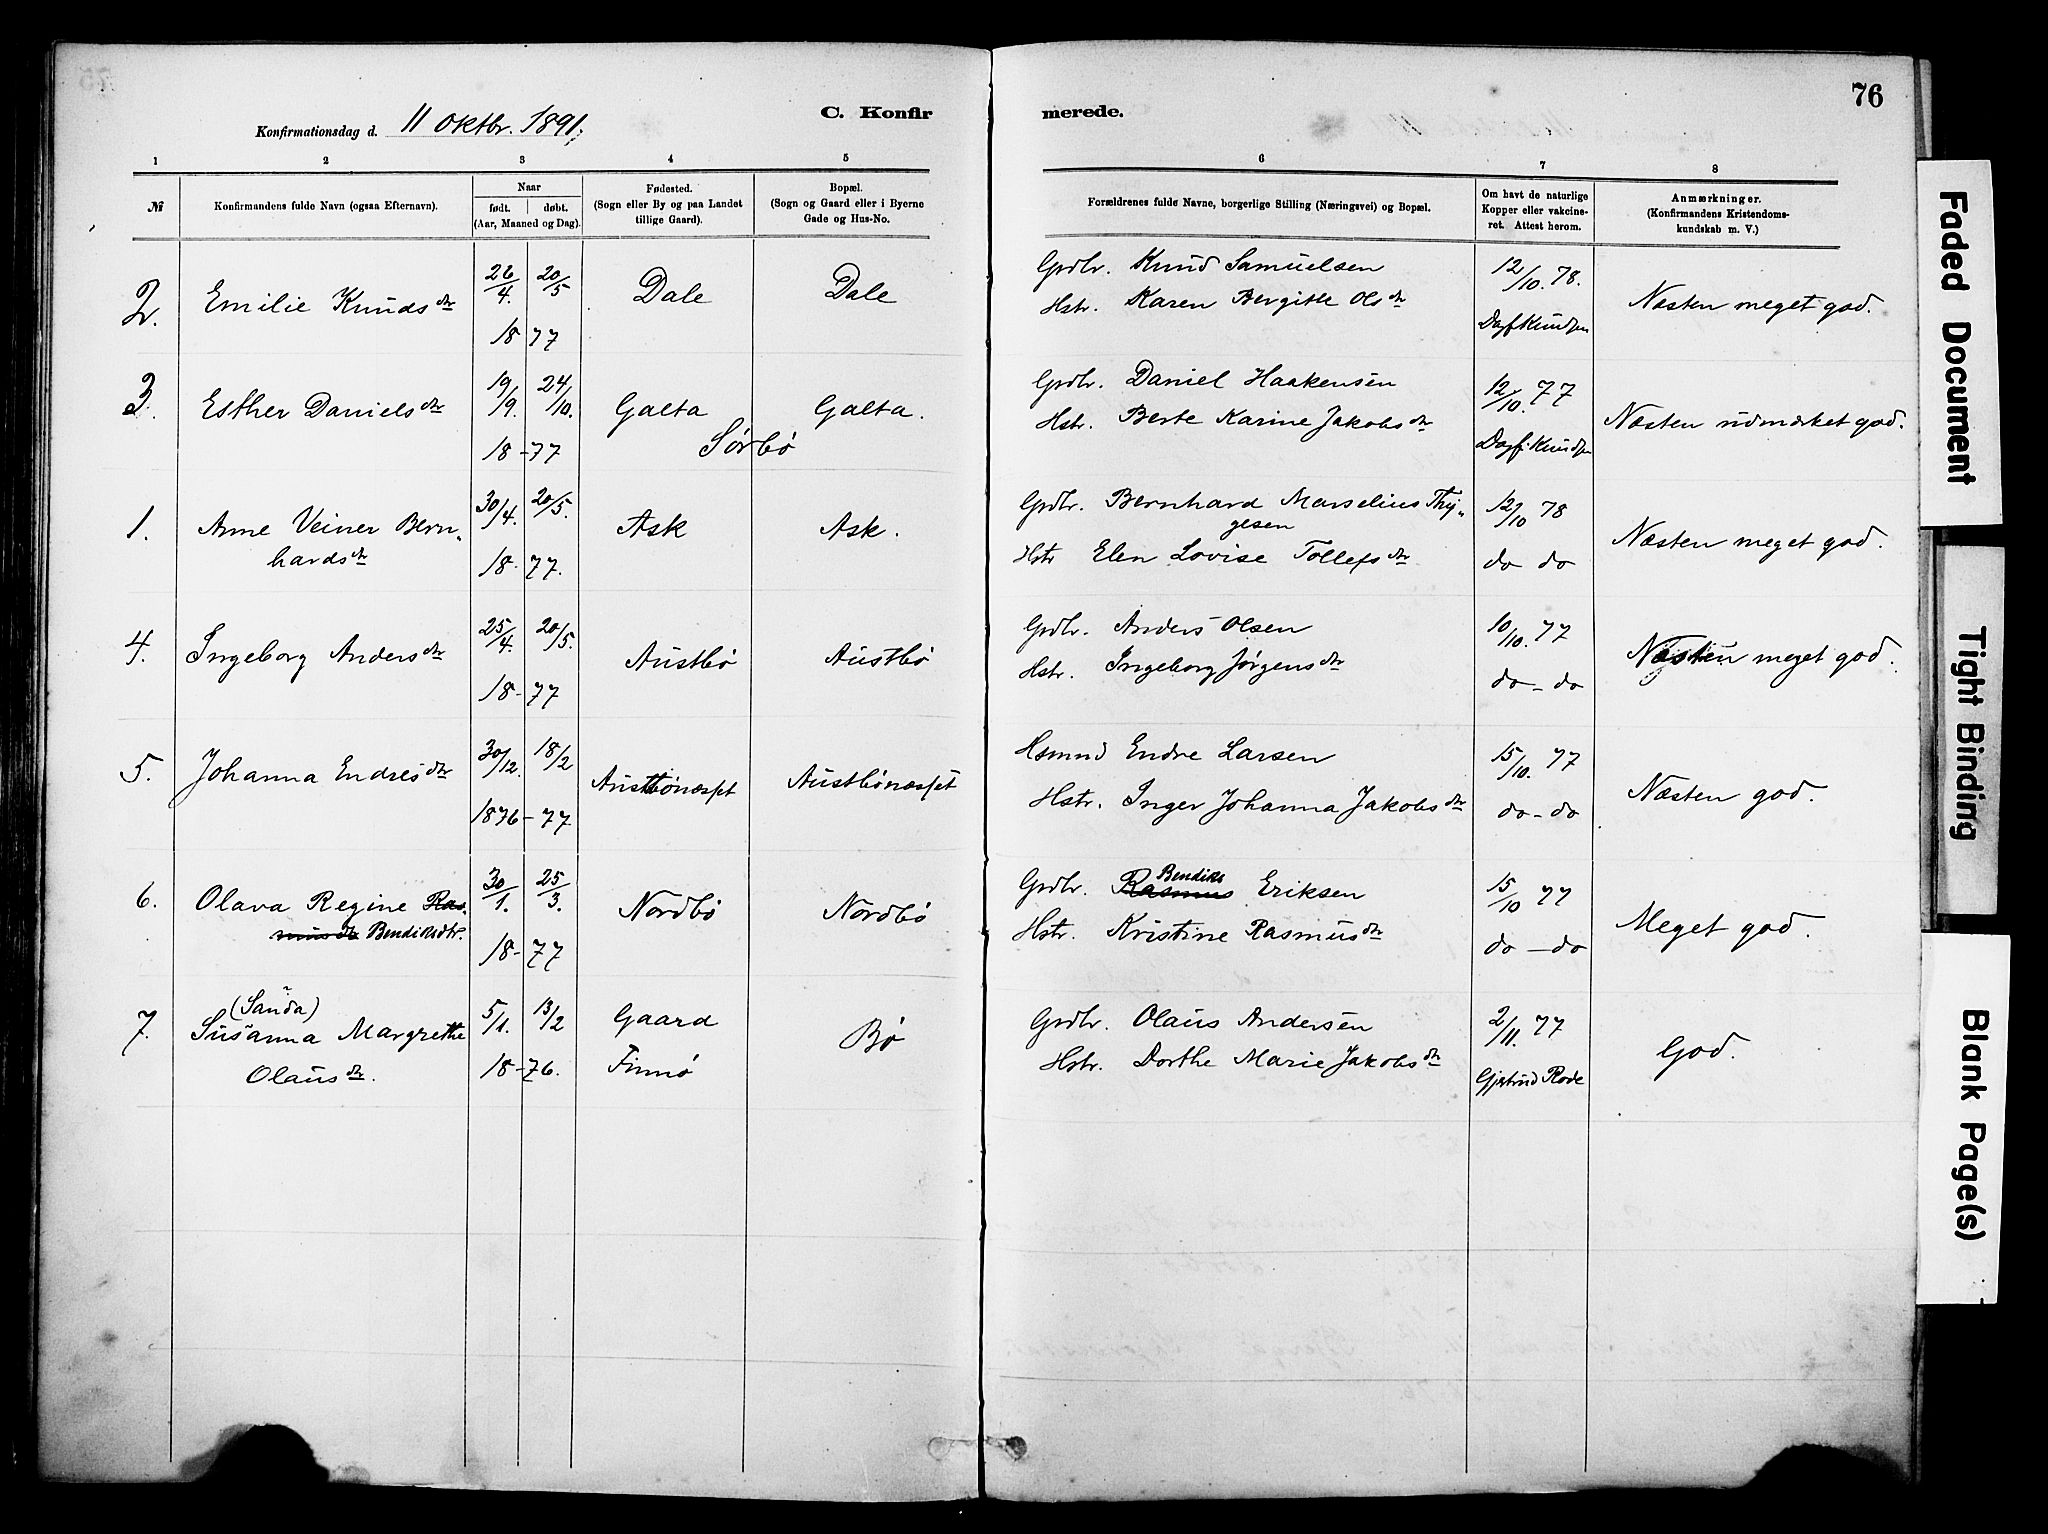 76
Konfirmationsdag d. 11 Oktbr. 1891.
C. Konfir merede.
1 2 3 4 5 6 7 8
№
Konfirmandens fulde Navn (ogsaa Efternavn).
Naar
født. døbt.
(Aar, Maaned og Dag).
Fødested.
(Sogn eller By og paa Landet
tillige Gaard).
Bopæl.
(Sogn og Gaard eller i Byerne
Gade og Hus-No.
Forældrenes fulde Navne, borgerlige Stilling (Næringsvei) og Bopæl.
Om havt de naturlige
Kopper eller vakcine-
ret. Attest herom.
Anmærkninger.
(Konfirmandens Kristendoms-
kundskab m. V.)
2. Emilie Knudsdtr 26/4. 20/5 Dale Dale Grdbr. Knud Samuelsen 12/10. 78. Næsten meget god.
Hstr. Karen Bergitte Olsdtr
18 77 Dagf Knudsen
3. Esther Danielsdtr 19/9. 24/10. Galta Galta. Grdbr. Daniel Haakensen 12/10. 77 Næsten udmærket god.
Hstr. Berte Karine Jakobsdtr
18-77 Sørbø Dagf. Knudsen
1. Anne Veiner Bern„ 30/4. 20/5. Ask Ask. Grdbr. Bernhard Marselius Thy„ 12/10 78 Næsten meget god.
gesen
hardsdtr 18-77. Hstr Elen Lovise Tollefsdtr do do
4. Ingeborg Andersdtr 25/4. 20/5. Austbø Austbø Grdbr. Anders Olsen 10/10. 77 Næsten meget god.
Hstr. Ingeborg Jørgensdtr
18-77 do - do
5. Johanna Endresdtr 30/12. 18/2 Austbønæsset Austbønæsset Hsmnd Endre Larsen 15/10. 77 Næsten god.
1876-77 Hstr. Inger Johanna Jakobsdtr do - do
6. Olava Regine Ras- 30/1. 25/3. Nordbø Nordbø Grdbr. Rasmus Bendiks Eriksen 15/10 77 Meget god.
musdtr Bendiksdtr. Hstr. Kristine Rasmusdtr
18-77 do - do
(Sanda)
7. Susanna Margrethe 5/1. 13/2 Gaard Bø Grdbr. Olaus Andersen 2/11. 77 God.
Olausdtr. 18-76. Finnø Hstr. Dorthe Marie Jakobsdtr Gjertrud Rode
Faded Document
Tight Binding
Blank Page(s)